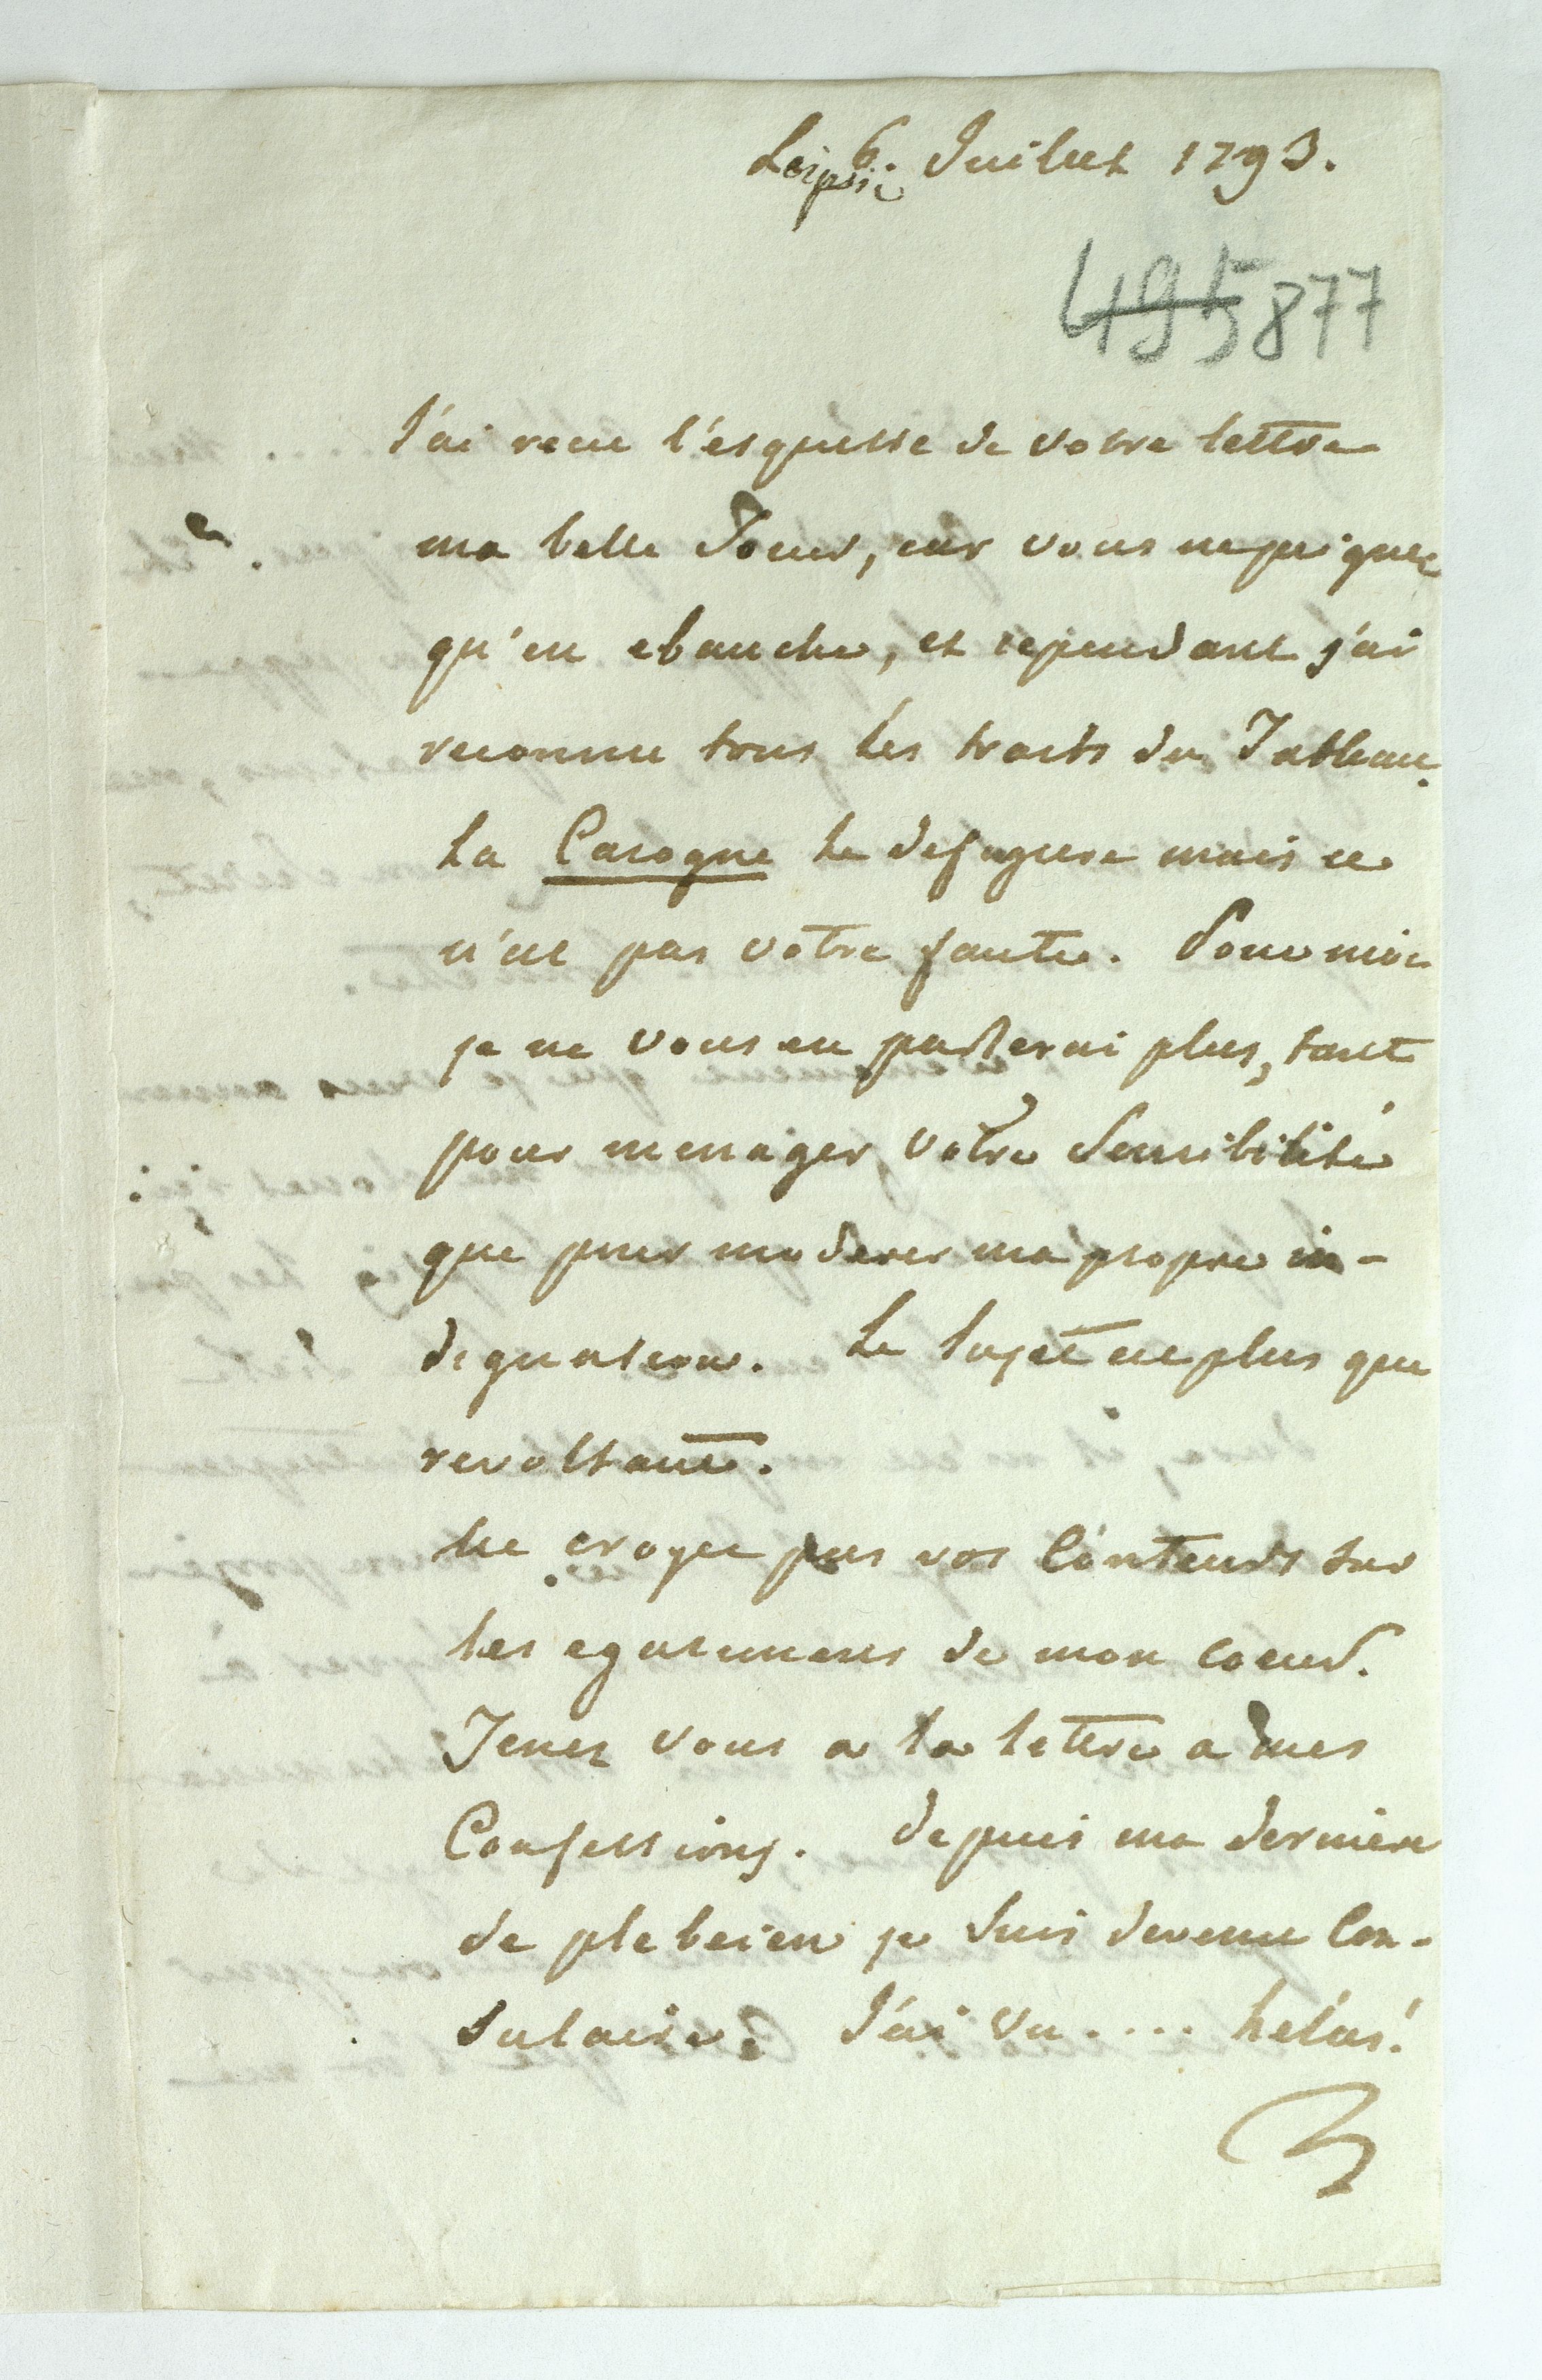 Leipsic 6. Juillet 1793.
495 877
J'ai recu l'esquisse de votre lettre
ma belle Soeur, car vous ne peignez
qu'en ebauche, et cependant j'ai
reconnu tous les traits du Tableau.
La Carogne le defigure mais ce
n'est pas votre faute. Pour moi
je ne vous en parlerai plus, tant
pour menager votre Sensibilité
que pour moderer ma propre in-
dignation. Le sujet est plus que
revoltant.
Ne croyez pas vos Conteurs sur
les egaremens de mon coeur.
Tenez vous a la lettre a mes
Confessions. depuis ma derniere
de plebeien je suis devenu Con-
sulaire. J'ai vu .... helas!